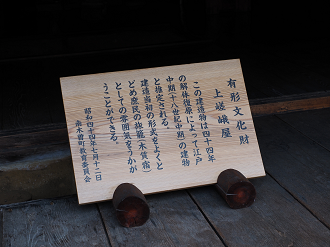 有形文化財
上嵯峨屋
この建造物は四十四年
の解体復原によって江戸
中期(十八世紀中期)の建物
と推定される。
建造当初の形式をよくと
どめ庶民の旅籠(木賃宿)
としての雰囲気をうかが
うことができる。
昭和四十四年七月十二日
南木曽町教育委員会